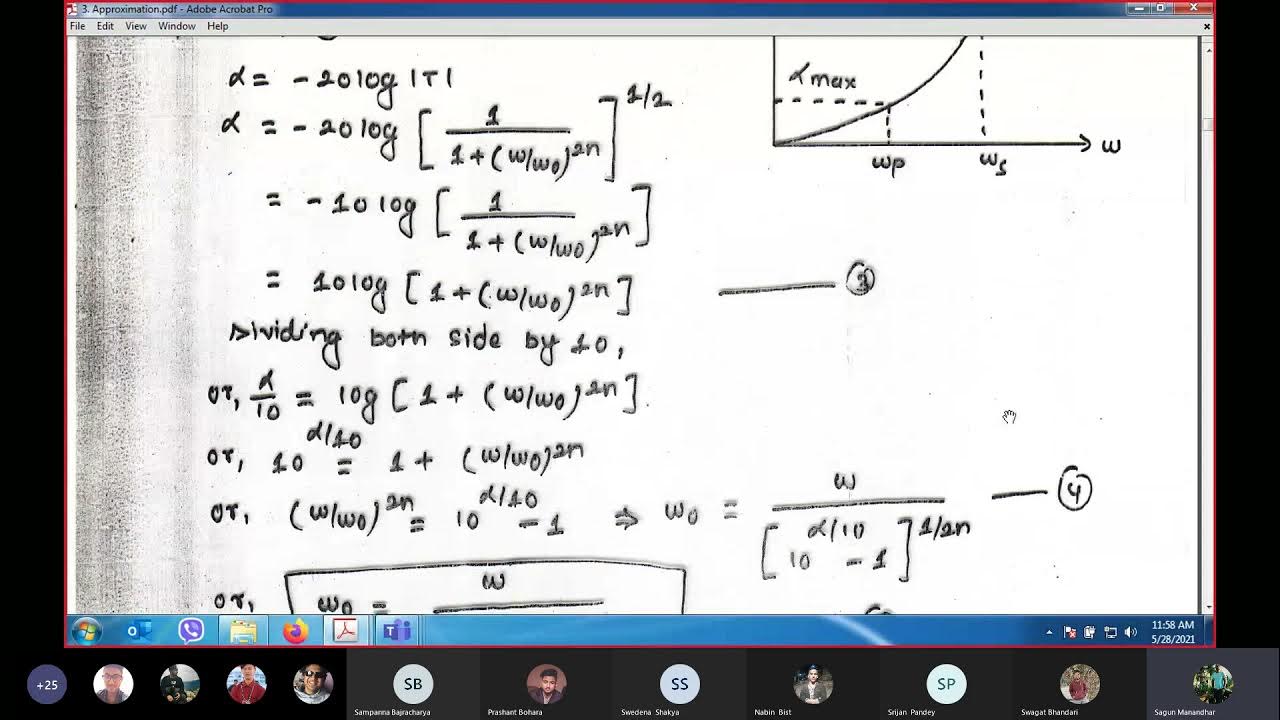 3. Approximation.pdf - Adobe Acrobat Pro
File Edit View Window Help
α = - 20 log |T|
α = - 20 log [ 1 / 1 + (ω/ω0)^2n ]^1/2
= - 10 log [ 1 / 1 + (ω/ω0)^2n ]
= 10 log [ 1 + (ω/ω0)^2n ] —— ③
Dividing both side by 10,
or, α/10 = log [ 1 + (ω/ω0)^2n ].
or, 10^α/10 = 1 + (ω/ω0)^2n
or, (ω/ω0)^2n = 10^α/10 - 1 ⇒ ω0 = ω / [ 10^α/10 - 1 ]^1/2n —— ④
or, ω0 = ω
αmax
ωp ωs ω
11:58 AM
5/28/2021
+25
SB
Sampanna Bajracharya
Prashant Bohara
SS
Swedena Shakya
Nabin Bist
SP
Srijan Pandey
Swagat Bhandari
Sagun Manandhar